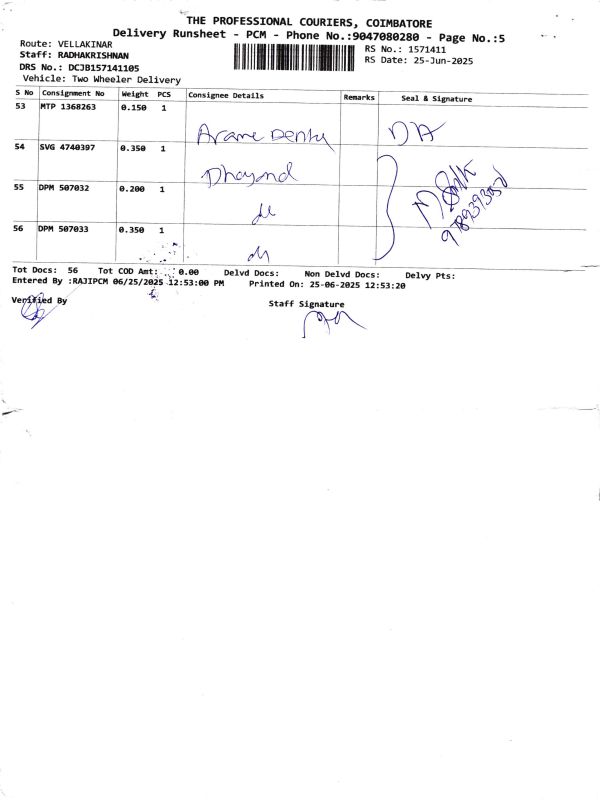 THE PROFESSIONAL COURIERS, COIMBATORE
Delivery Runsheet - PCM - Phone No.:9047080280 - Page No.:5
Route: VELLAKINAR
Staff: RADHAKRISHNAN
DRS No.: DCJB157141105
Vehicle: Two Wheeler Delivery
RS No.: 1571411
RS Date: 25-Jun-2025
S No Consignment No Weight PCS Consignee Details Remarks Seal & Signature
53 MTP 1368263 0.150 1
54 SVG 4740397 0.350 1
55 DPM 507032 0.200 1
56 DPM 507033 0.350 1
Tot Docs: 56 Tot COD Amt: 0.00 Delvd Docs: Non Delvd Docs: Delvy Pts:
Entered By :RAJIPCM 06/25/2025 12:53:00 PM Printed On: 25-06-2025 12:53:20
Verified By Staff Signature